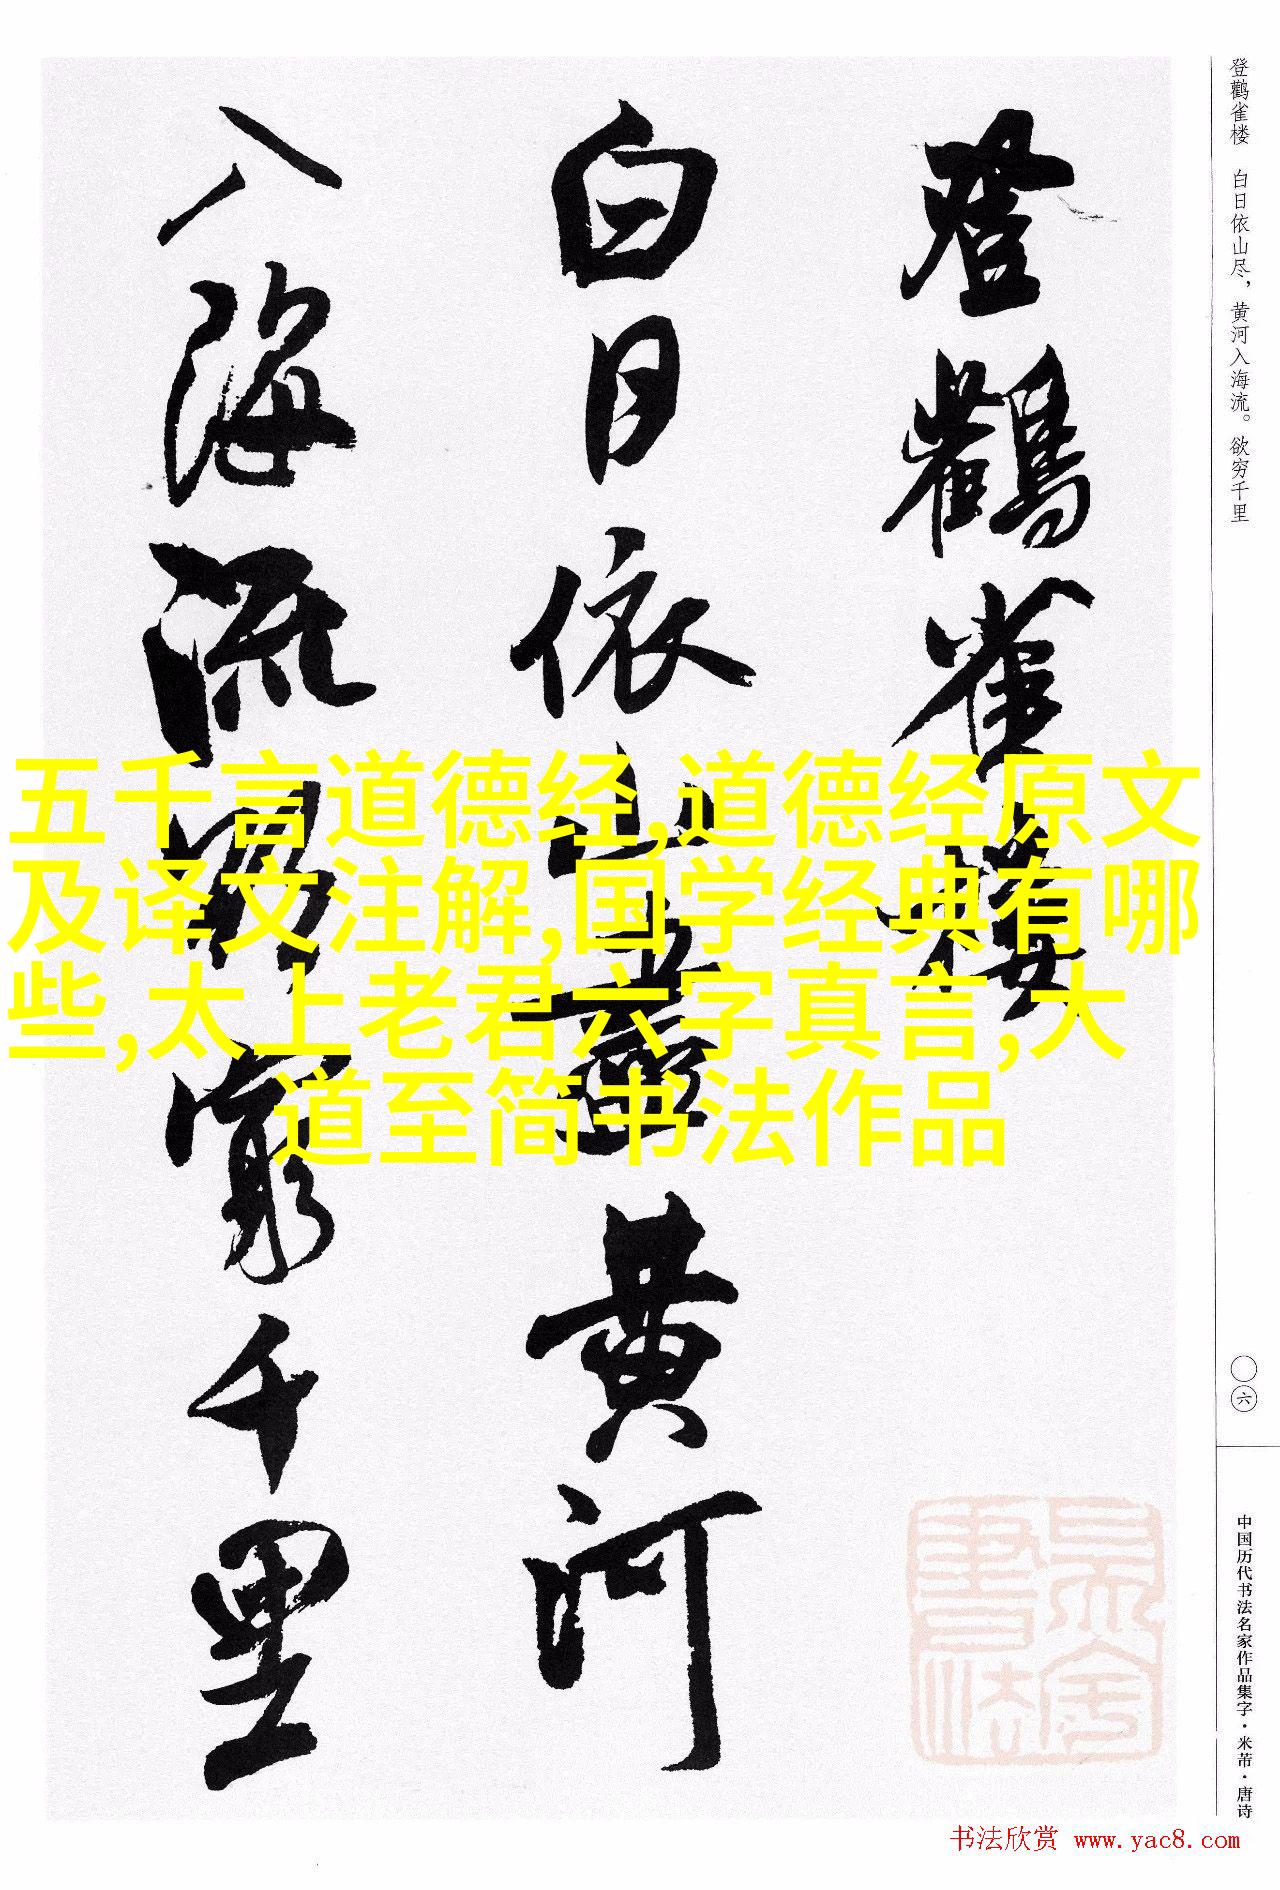 登鹳雀楼 白日依山尽，黄河入海流。欲穷千里
登鸛雀樓
白日依山盡黄河
入海流欲窮千里
五千言道德经,道德经原文
及译文注解,国学经典有哪
些,太上老君六字真言,大
道至简书法作品
〇六
中国历代书法名家作品集字·米芾·唐诗
书法欣赏 www.yac8.com